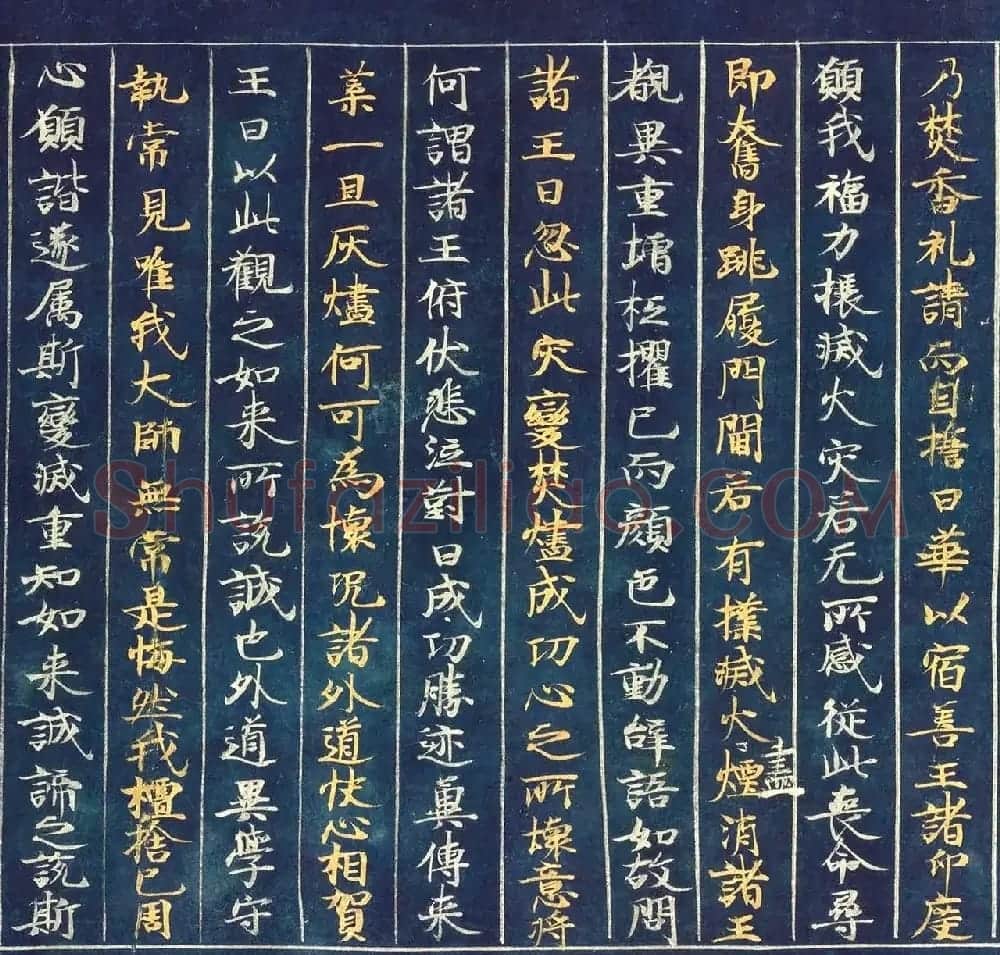 乃焚香礼請而自誓曰華以宿善王諸印度
願我福力攘滅火灾若无所感從此喪命尋
即奮身跳履門閫若有撲滅火盡煙消諸王
覩異重増祇懼已而顔色不動辞語如故問
諸王曰忽此灾變焚燼成功心之所懐意将
何謂諸王俯伏悲泣對曰成功勝迹冀傳来
葉一旦灰燼何可為懐况諸外道快心相賀
王曰以此觀之如来所説誠也外道異學守
執常見唯我大師無常是悔然我檀捨已周
心願諧遂属斯變滅重知如来誠諦之説斯
Shufaziliao.COM